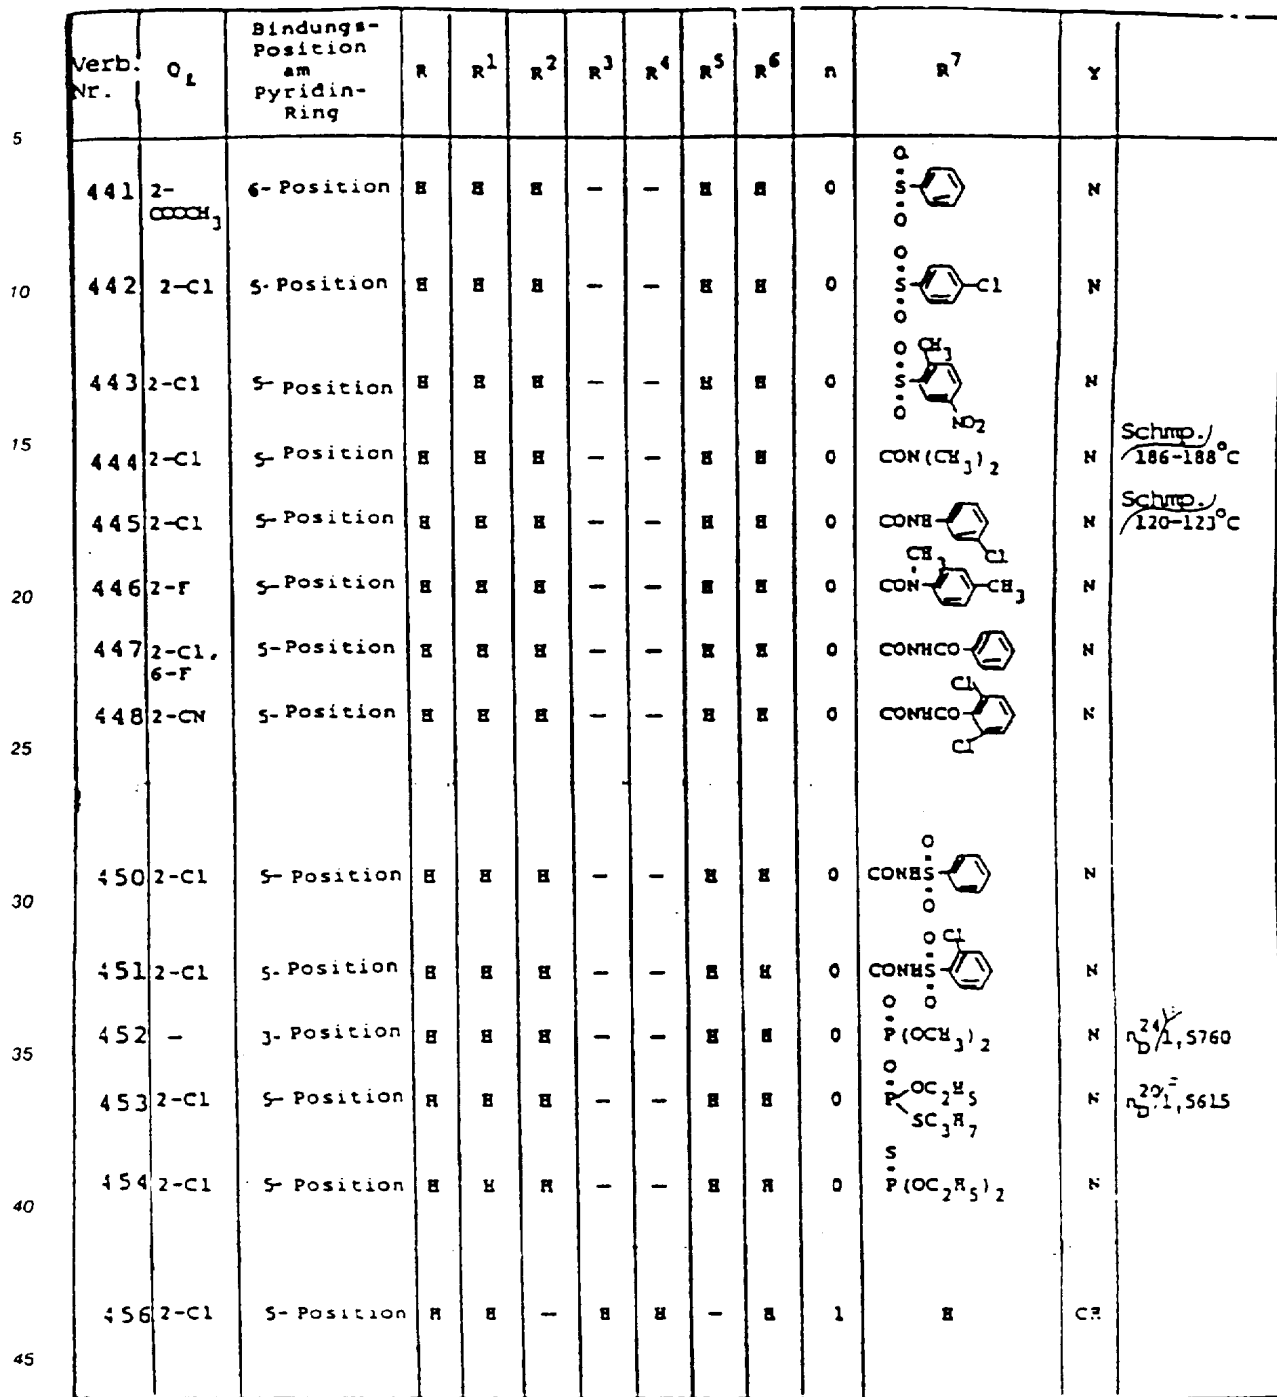 Verb. Nr. Q_L Bindungs-Position am Pyridin-Ring R R^1 R^2 R^3 R^4 R^5 R^6 n R^7 Y
5
441 2-COOCH_3 6-Position H H H — — H H 0 O S O N
10 442 2-Cl 5-Position H H H — — H H 0 O S O Cl N
443 2-Cl 5-Position H H H — — H H 0 O S O CH_3 NO_2 N
15 444 2-Cl 5-Position H H H — — H H 0 CON(CH_3)_2 N Schmp./ 186-188°C
445 2-Cl 5-Position H H H — — H H 0 CONH Cl N Schmp./ 120-123°C
20 446 2-F 5-Position H H H — — H H 0 CH_3 CON CH_3 N
447 2-Cl, 6-F 5-Position H H H — — H H 0 CONHCO N
448 2-CN 5-Position H H H — — H H 0 CONHCO Cl Cl N
25
30 450 2-Cl 5-Position H H H — — H H 0 CONHS O O N
451 2-Cl 5-Position H H H — — H H 0 CONHS O O Cl N
35 452 — 3-Position H H H — — H H 0 O P(OCH_3)_2 N n_D^24 1,5760
453 2-Cl 5-Position H H H — — H H 0 O P OC_2H_5 SC_3H_7 N n_D^20 1,5615
40 454 2-Cl 5-Position H H H — — H H 0 S P(OC_2H_5)_2 N
456 2-Cl 5-Position H H — H H — H 1 H CH
45